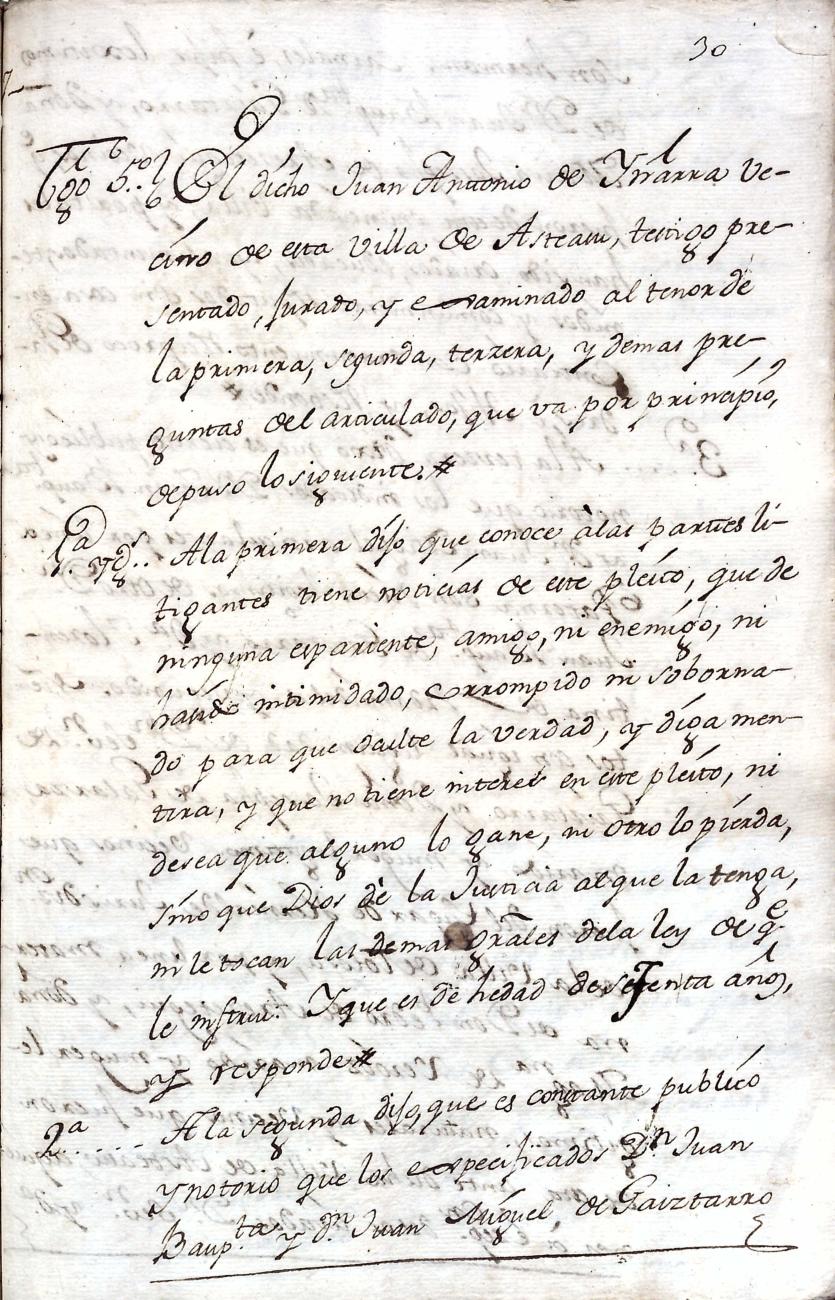 30
Tgo 5º.. El dicho Juan Antonio de Yvarra ve-
cino de esta villa de Asteasu, testigo pre-
sentado, jurado, y examinado al tenor de
la primera, segunda, terzera, y demas pre-
guntas del articulado, que va por principio,
depuso lo siguiente. #
1ª y gs.. Ala primera dijo que conoce àlas partes li-
tigantes tiene noticias de este pleito, que de
ninguna es pariente, amigo, ni enemigo, ni
ha sido intimidado, corrompido ni soborna-
do para que oculte la verdad, y diga men-
tira, y que no tiene interes en este pleito, ni
desea que alguno lo gane, ni otro lo pierda,
sino que Dios dè la Justicia al que la tenga,
ni le tocan las demas grãles dela ley de qe
le instrui. Y que es de hedad de setenta años,
y responde #
2ª..... Ala segunda dijo, que es constante publico
y notorio que los expecificados Dn Juan
Baupta y dn Juan Miguel de Gaiztarro